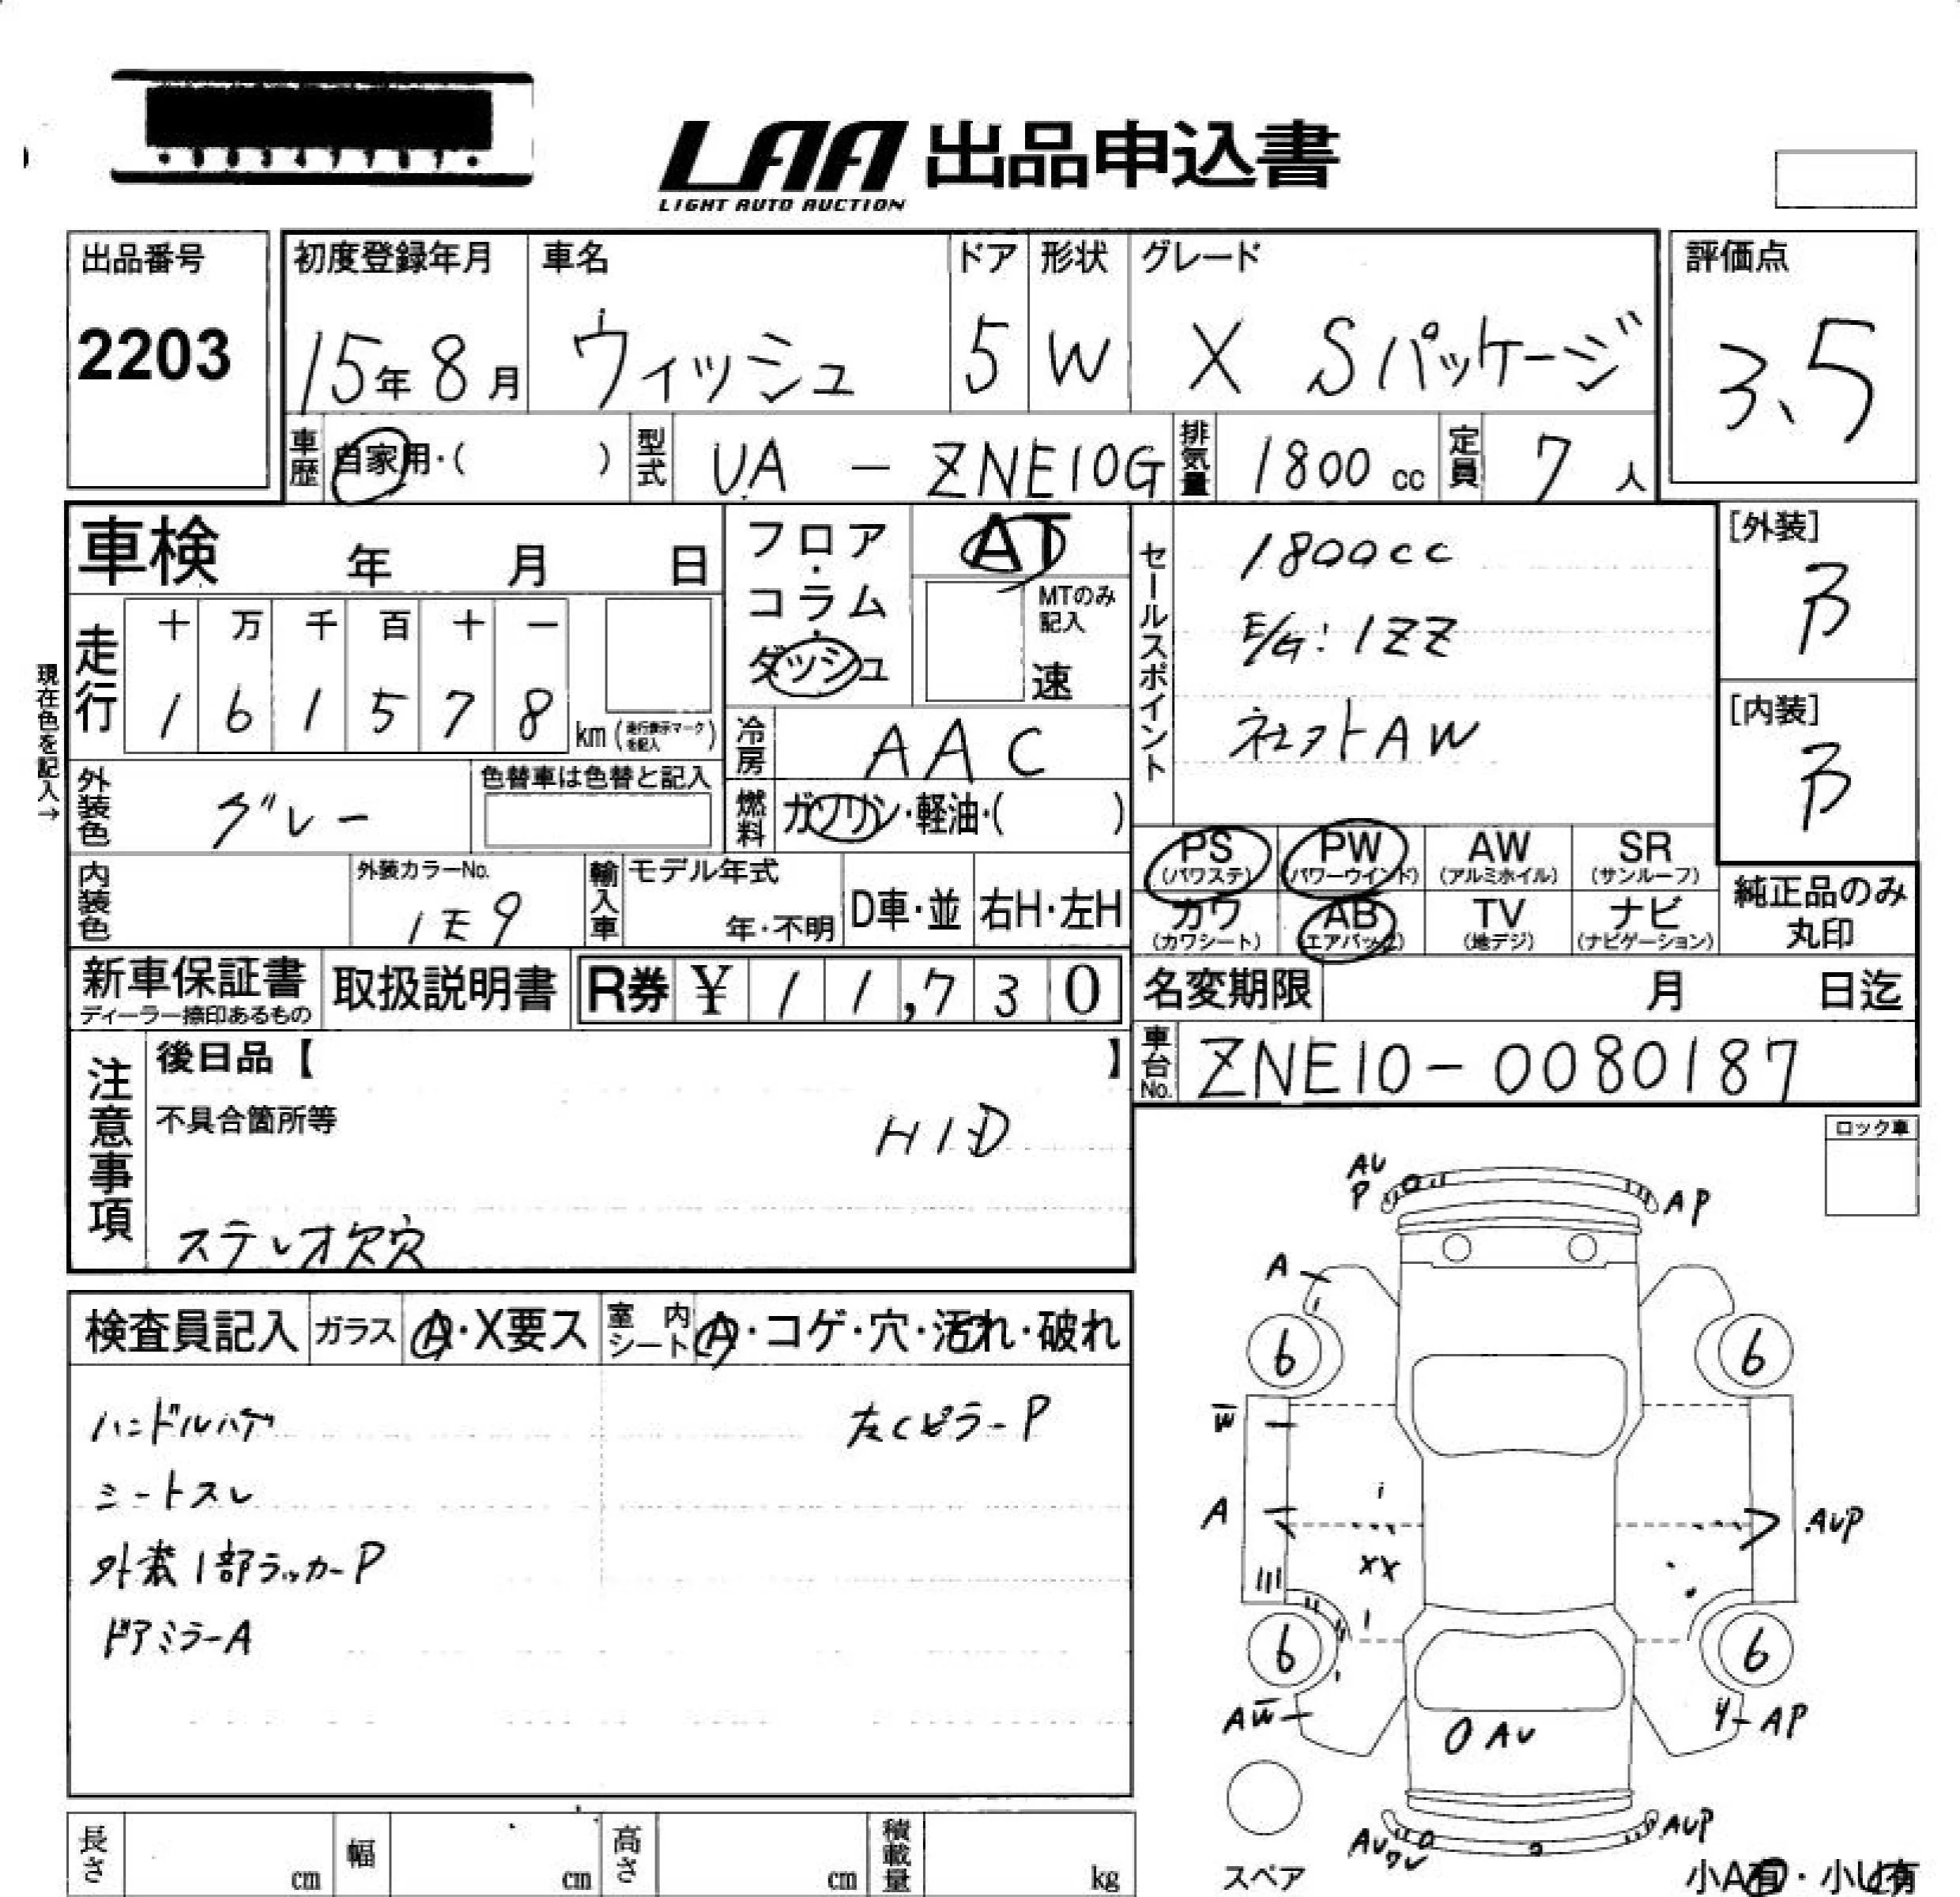 LAA 出品申込書
LIGHT AUTO AUCTION
出品番号
2203
初度登録年月
15年8月
車名
ウィッシュ
ドア
5
形状
W
グレード
X Sパッケージ
評価点
3.5
車歴
自家用・( )
型式
UA - ZNE10G
排気量
1800 cc
定員
7 人
車検 年 月 日
フロア・コラム・ダッシュ
AT
MTのみ記入
速
セールスポイント
1800cc
E/G: 1ZZ
社外AW
[外装]
B
[内装]
B
現在色を記入→
走行
十 万 千 百 十 一
1 6 1 5 7 8
km (走行表示マークを記入)
冷房
AAC
外装色
グレー
色替車は色替と記入
燃料
ガソリン・軽油・( )
PS
(パワステ)
PW
(パワーウインド)
AW
(アルミホイル)
SR
(サンルーフ)
カワ
(カワシート)
AB
(エアバック)
TV
(地デジ)
ナビ
(ナビゲーション)
純正品のみ
丸印
内装色
外装カラーNo.
1E9
輸入車
モデル年式
年・不明
D車・並
右H・左H
新車保証書
ディーラー捺印あるもの
取扱説明書
R券 ¥ 11,730
名変期限 月 日迄
車台No.
ZNE10-0080187
注意事項
後日品【 】
不具合箇所等
HID
ステレオ欠穴
ロック車
検査員記入
ガラス
A・X要ス
室内シート
A・コゲ・穴・汚れ・破れ
ハンドルハゲ
左Cピラー P
シートスレ
外装1部ラッカーP
ドアミラーA
AU
P
AP
A
6
6
W
A
AUP
XX
6
6
AW
Y
AP
AU
AU
AUP
スペア
小A有・小U有
長さ
cm
幅
cm
高さ
cm
積載量
kg